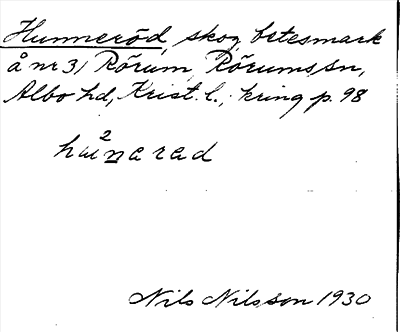 Hunneröd, skog, betesmark
å nr 31 Rörum, Rörums sn,
Albo hd, Krist. l., kring p. 98
Nils Nilsson 1930